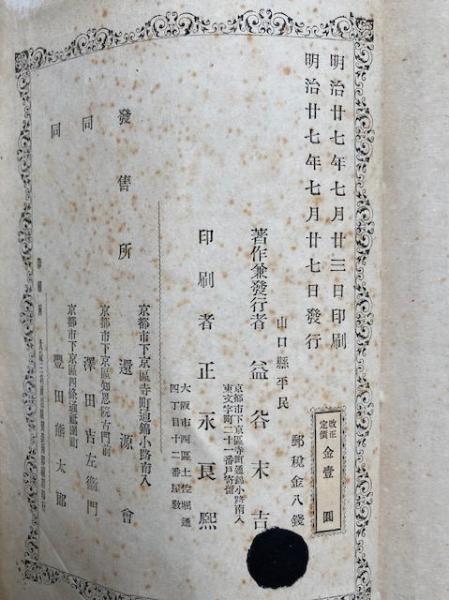 明治廿七年七月廿三日印刷
明治廿七年七月廿七日發行
改正
定價
金壹圓
郵税金八錢
山口縣平民
著作兼發行者 益谷末吉
京都市下京區寺町通錦小路南入
東文字町二十一番戸寄留
印刷者 正永良熈
大阪市西區土佐堀通
四丁目十二番屋敷
發售所 還源會
京都市下京區寺町通錦小路南入
同 澤田吉左衞門
京都市下京區知恩院古門前
同 豐田熊太郎
京都市下京區四條通祇園町